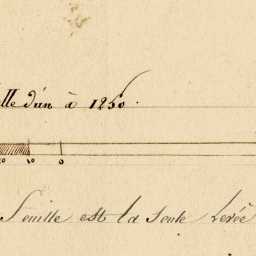 lle d'un à 1250.
0 0
feuille est la seule levée